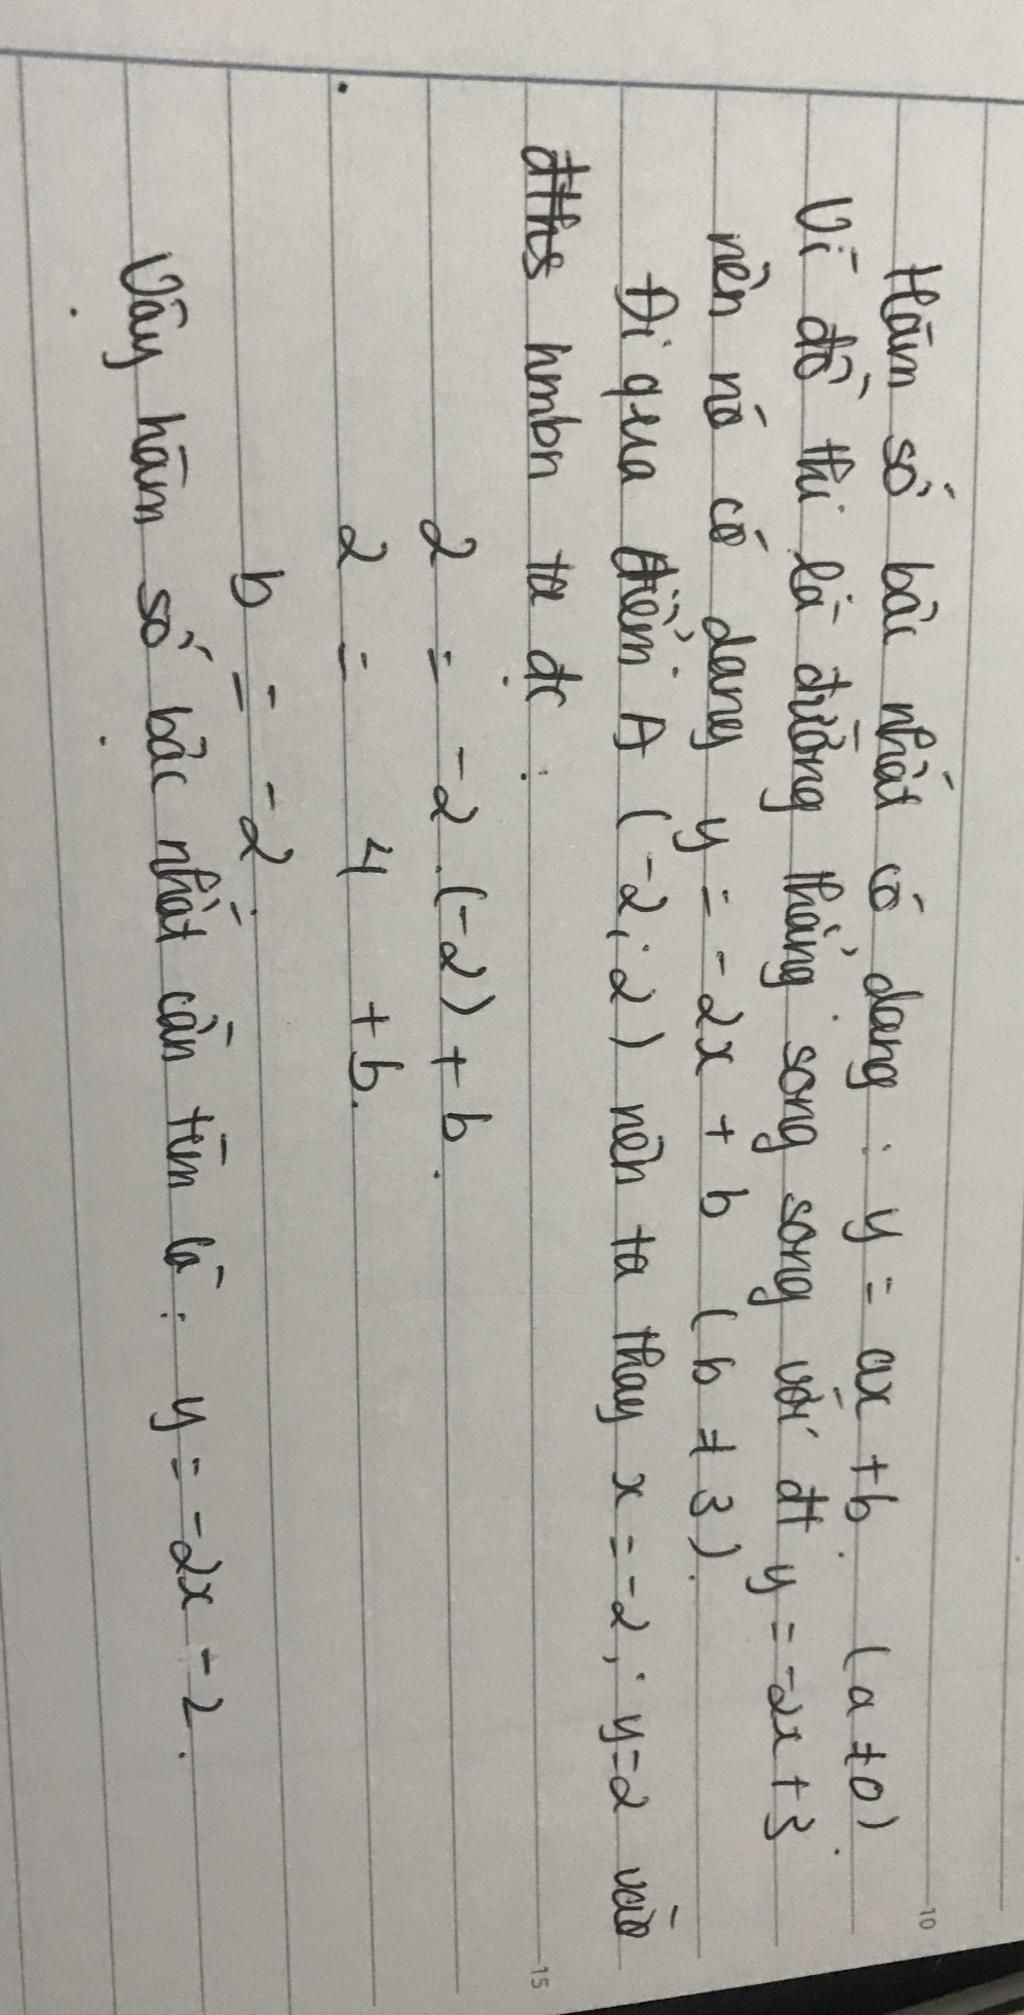 Hàm số bậc nhất có dạng : y = ax + b. (a ≠ 0)
Vì đồ thị là đường thẳng song song với đt y = -2x + 3
nên nó có dạng y = -2x + b (b ≠ 3).
Đi qua điểm A (-2; 2) nên ta thay x = -2; y = 2 vào
đths hmbn ta đc :
2 = -2.(-2) + b.
2 = 4 + b.
b = -2.
Vậy hàm số bậc nhất cần tìm là : y = -2x - 2.
10
15